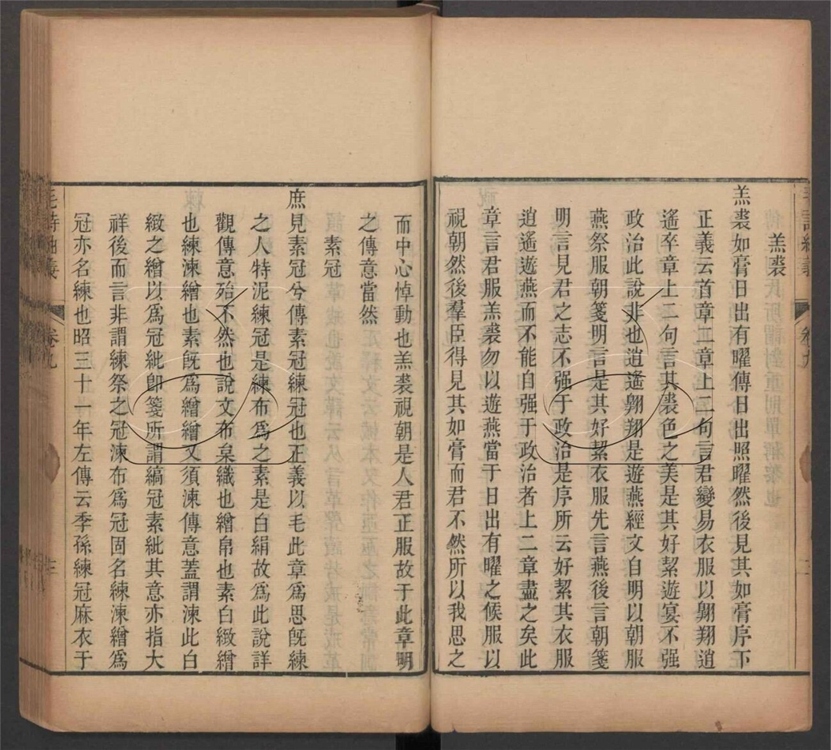 羔裘
羔裘如膏日出有曜傳日出照曜然後見其如膏序下
正義云首章二章上二句言君變易衣服以翺翔逍
遙卒章上二句言其裘色之美是其好絜遊宴不强
政治此說非也逍遙翺翔是遊燕經文自明以朝服
燕祭服朝箋明言是其好絜衣服先言燕後言朝箋
明言見君之志不强于政治是序所云好絜其衣服
逍遙遊燕而不能自强于政治者上二章盡之矣此
章言君服羔裘勿以遊燕當于日出有曜之候服以
視朝然後羣臣得見其如膏而君不然所以我思之
而中心悼動也羔裘視朝是人君正服故于此章明
之傳意當然
素冠
庶見素冠兮傳素冠練冠也正義以毛此章爲思旣練
之人特泥練冠是練布爲之素是白絹故爲此說詳
觀傳意殆不然也說文布枲織也繒帛也素白緻繒
也練湅繒也素旣爲繒繒又須湅傳意蓋謂湅此白
緻之繒以爲冠紕卽箋所謂縞冠素紕其意亦指大
祥後而言非謂練祭之冠湅布爲冠固名練湅繒爲
冠亦名練也昭三十一年左傳云季孫練冠麻衣于
毛詩紬義
卷九